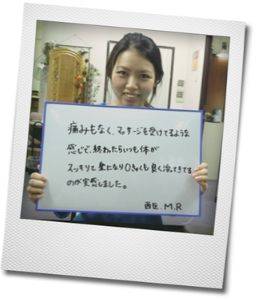 痛みもなく、マッサージを受けてるような
感じで、終わったらいつも体が
スッキリて楽になり
良く治ってきてる
のが実感しました。
M.R